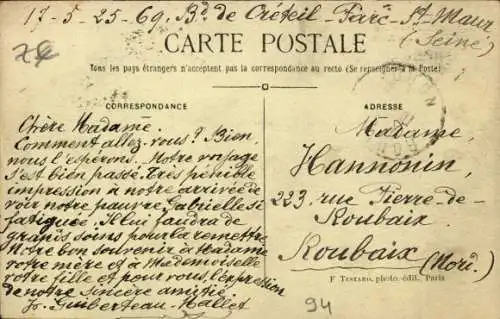 17-5-25-69, Bd de Créteil - Parc-St-Maur
(Seine)
CARTE POSTALE
Tous les pays étrangers n'acceptent pas la correspondance au recto (Se renseigner à la Poste)
CORRESPONDANCE
ADRESSE
Chère Madame.
Comment allez-vous? Bien,
nous l'espérons. Notre voyage
s'est bien passé. Très pénible
impression à notre arrivée de
voir notre pauvre Gabrielle si
fatiguée. Il lui faudra de
grands soins pour la remettre
Notre bon souvenir à Madame
votre mère et à Mademoiselle
votre fille et pour vous, l'expression
de notre sincère amitié
Guiberteau-Mallet
Madame,
Hannonin,
223, rue Pierre-de-
Roubaix
Roubaix
(Nord.)
F Testard, photo.-édit., Paris
94